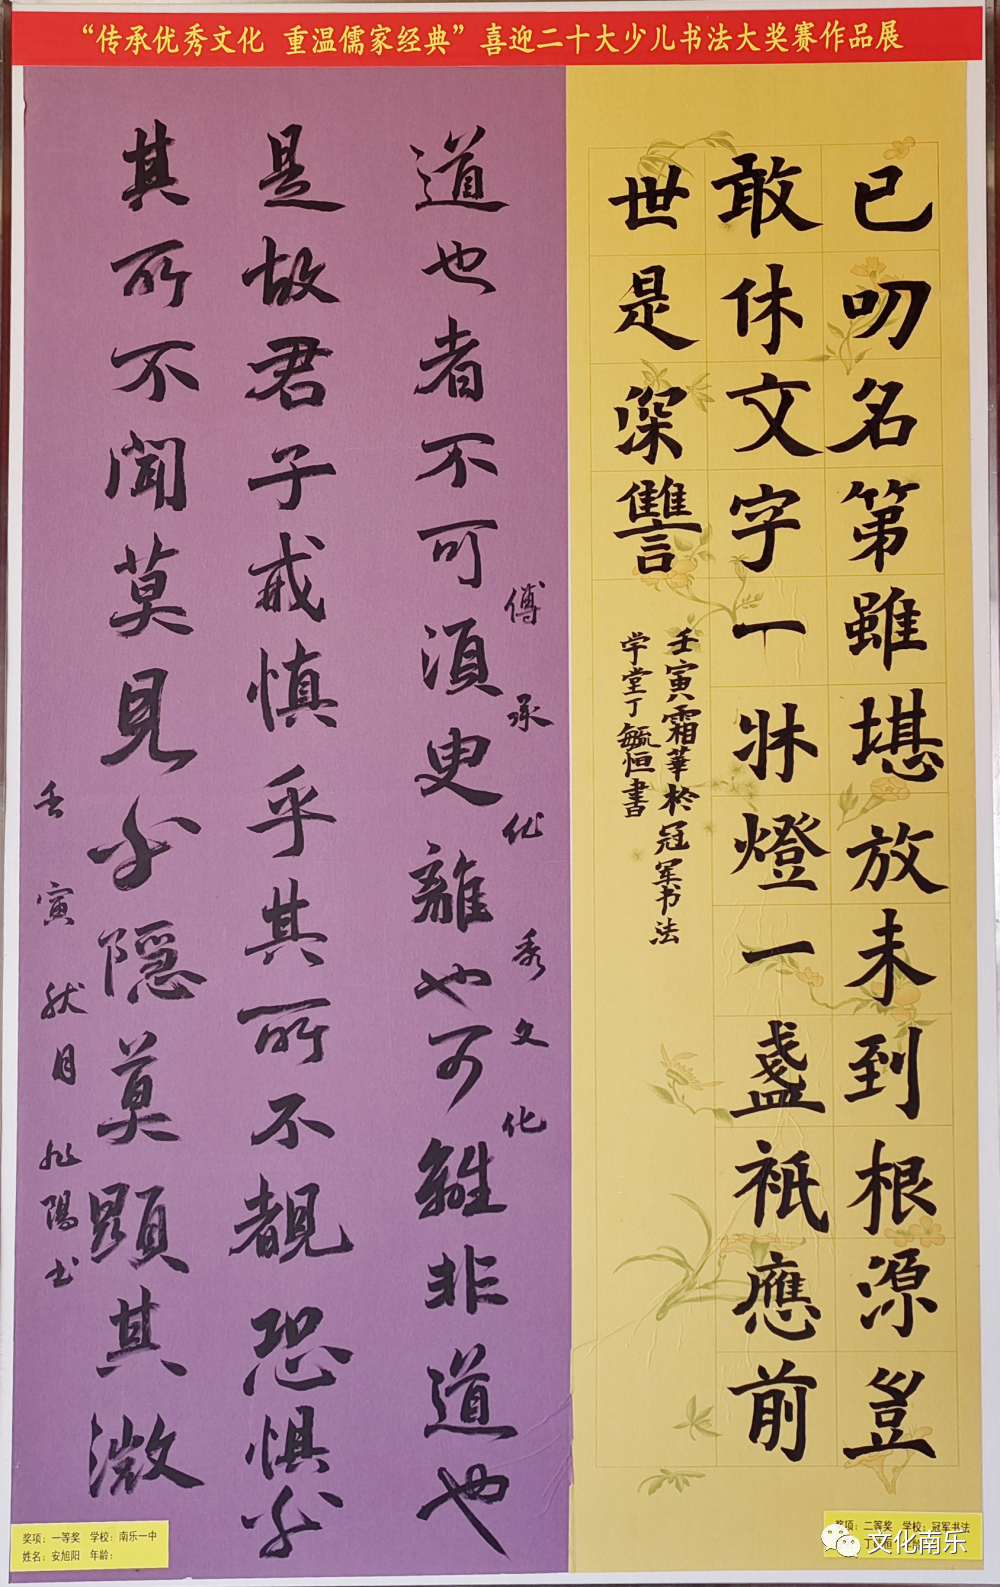 “传承优秀文化 重温儒家经典”喜迎二十大少儿书法大奖赛作品展
已叨名第雖堪放未到根源豈
敢休文字一牀燈一盞祇應前
世是深讐
壬寅霜華於冠军书法
学堂丁毓恒書
傅承优秀文化
道也者不可須臾離也可離非道也
是故君子戒慎乎其所不覩恐惧乎
其所不闻莫見乎隐莫顕其微
壬寅秋月旭陽书
奖项：一等奖 学校：南乐一中
姓名：安旭阳 年龄：
奖项：二等奖 学校：冠军书法
文化南乐